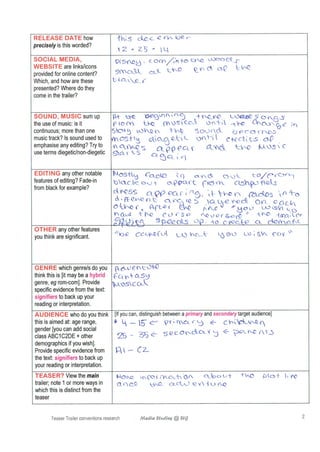 RELEASE DATE how precisely is this worded?
this december
12 · 25 · 14
SOCIAL MEDIA, WEBSITE are links/icons provided for online content? Which, and how are these presented? Where do they come in the trailer?
Disney.com/intothewoods
small at the end of the
trailer
SOUND, MUSIC sum up the use of music: is it continuous; more than one music track? Is sound used to emphasise any editing? Try to use terms diegetic/non-diegetic
At the beginning there
from the musical until the change in
story when the sound becomes
mostly diagetic until credits of
names appear and the music
starts again
EDITING any other notable features of editing? Fade-in from black for example?
Mostly fade in and out to/from
black out apart from
dress appearing, it then fades into
different angles layered on each
other. After the line "you wish
now the curse the trailer
speeds up to create a
OTHER any other features you think are significant.
"be careful what you wish for"
GENRE which genre/s do you think this is [it may be a hybrid genre, eg rom-com]. Provide specific evidence from the text: signifiers to back up your reading or interpretation.
Adventure
Fantasy
Musical
AUDIENCE who do you think this is aimed at: age range, gender [you can add social class ABC1C2DE + other demographics if you wish]. Provide specific evidence from the text: signifiers to back up your reading or interpretation.
[If you can, distinguish between a primary and secondary target audience]
4 - 15 ← primary ← children
25 - 35 ← secondary ← parents
A1 - C2
TEASER? View the main trailer; note 1 or more ways in which this is distinct from the teaser
More information about the plot line
and the adventure
Teaser Trailer conventions research Media Studies @ SQ 2